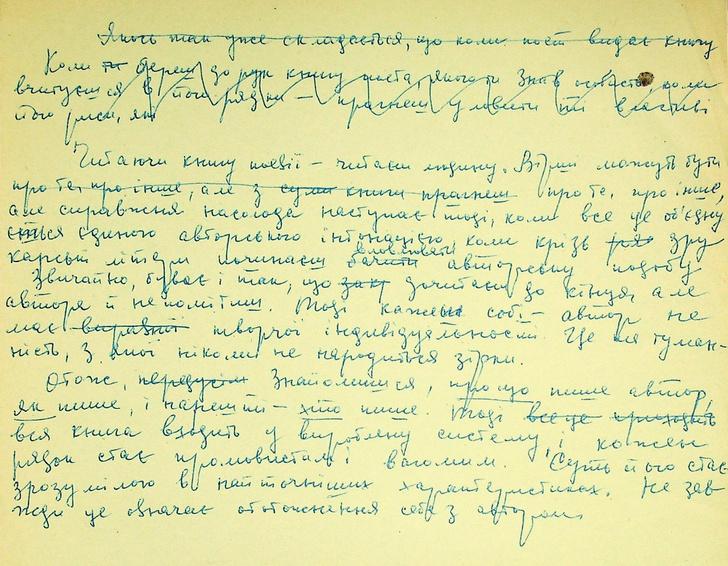 Якось так уже складається, що коли поет видає книгу
Коли ти береш до рук книгу поета, якого ти знав особисто, коли
вчитуєшся в його рядки – прагнеш уловити ті властиві
його риси, які
Читаючи книгу поезії – читаєш людину. Вірші можуть бути
про те, про інше, але з суми книги прагнеш про те, про інше,
але справжня насолода наступає тоді, коли все це об'єдну
ється єдиною авторською інтонацією коли крізь дру
карські літери починаєш бачити вловлювати авторську подобу
Звичайно, буває і так, що дочитаєш до кінця, але
автора й не помітиш. Тоді кажеш собі – автор не
має виразної творчої індивідуальності. Це та туман-
ність, з якої ніколи не народиться зірка.
Отож, передусім знайомишся, про що пише автор,
як пише, і нарешті – хто пише. Тоді все це приходить
вся книга входить у вироблену систему, і кожен
рядок стає промовистим і вагомим. Суть його стає
зрозумілою в найточніших характеристиках. Не зав
жди це означає ототожнення себе з автором.